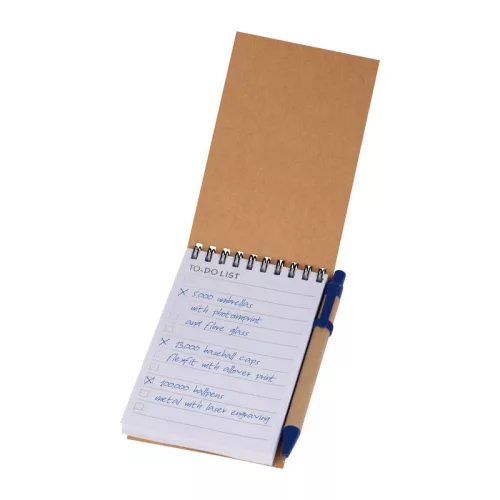 TO-DO LIST
5,000 umbrellas
with photoimprint
and fibre glass
13,000 baseball caps
flexfit with allover print
100,000 ballpens
metal with laser engraving